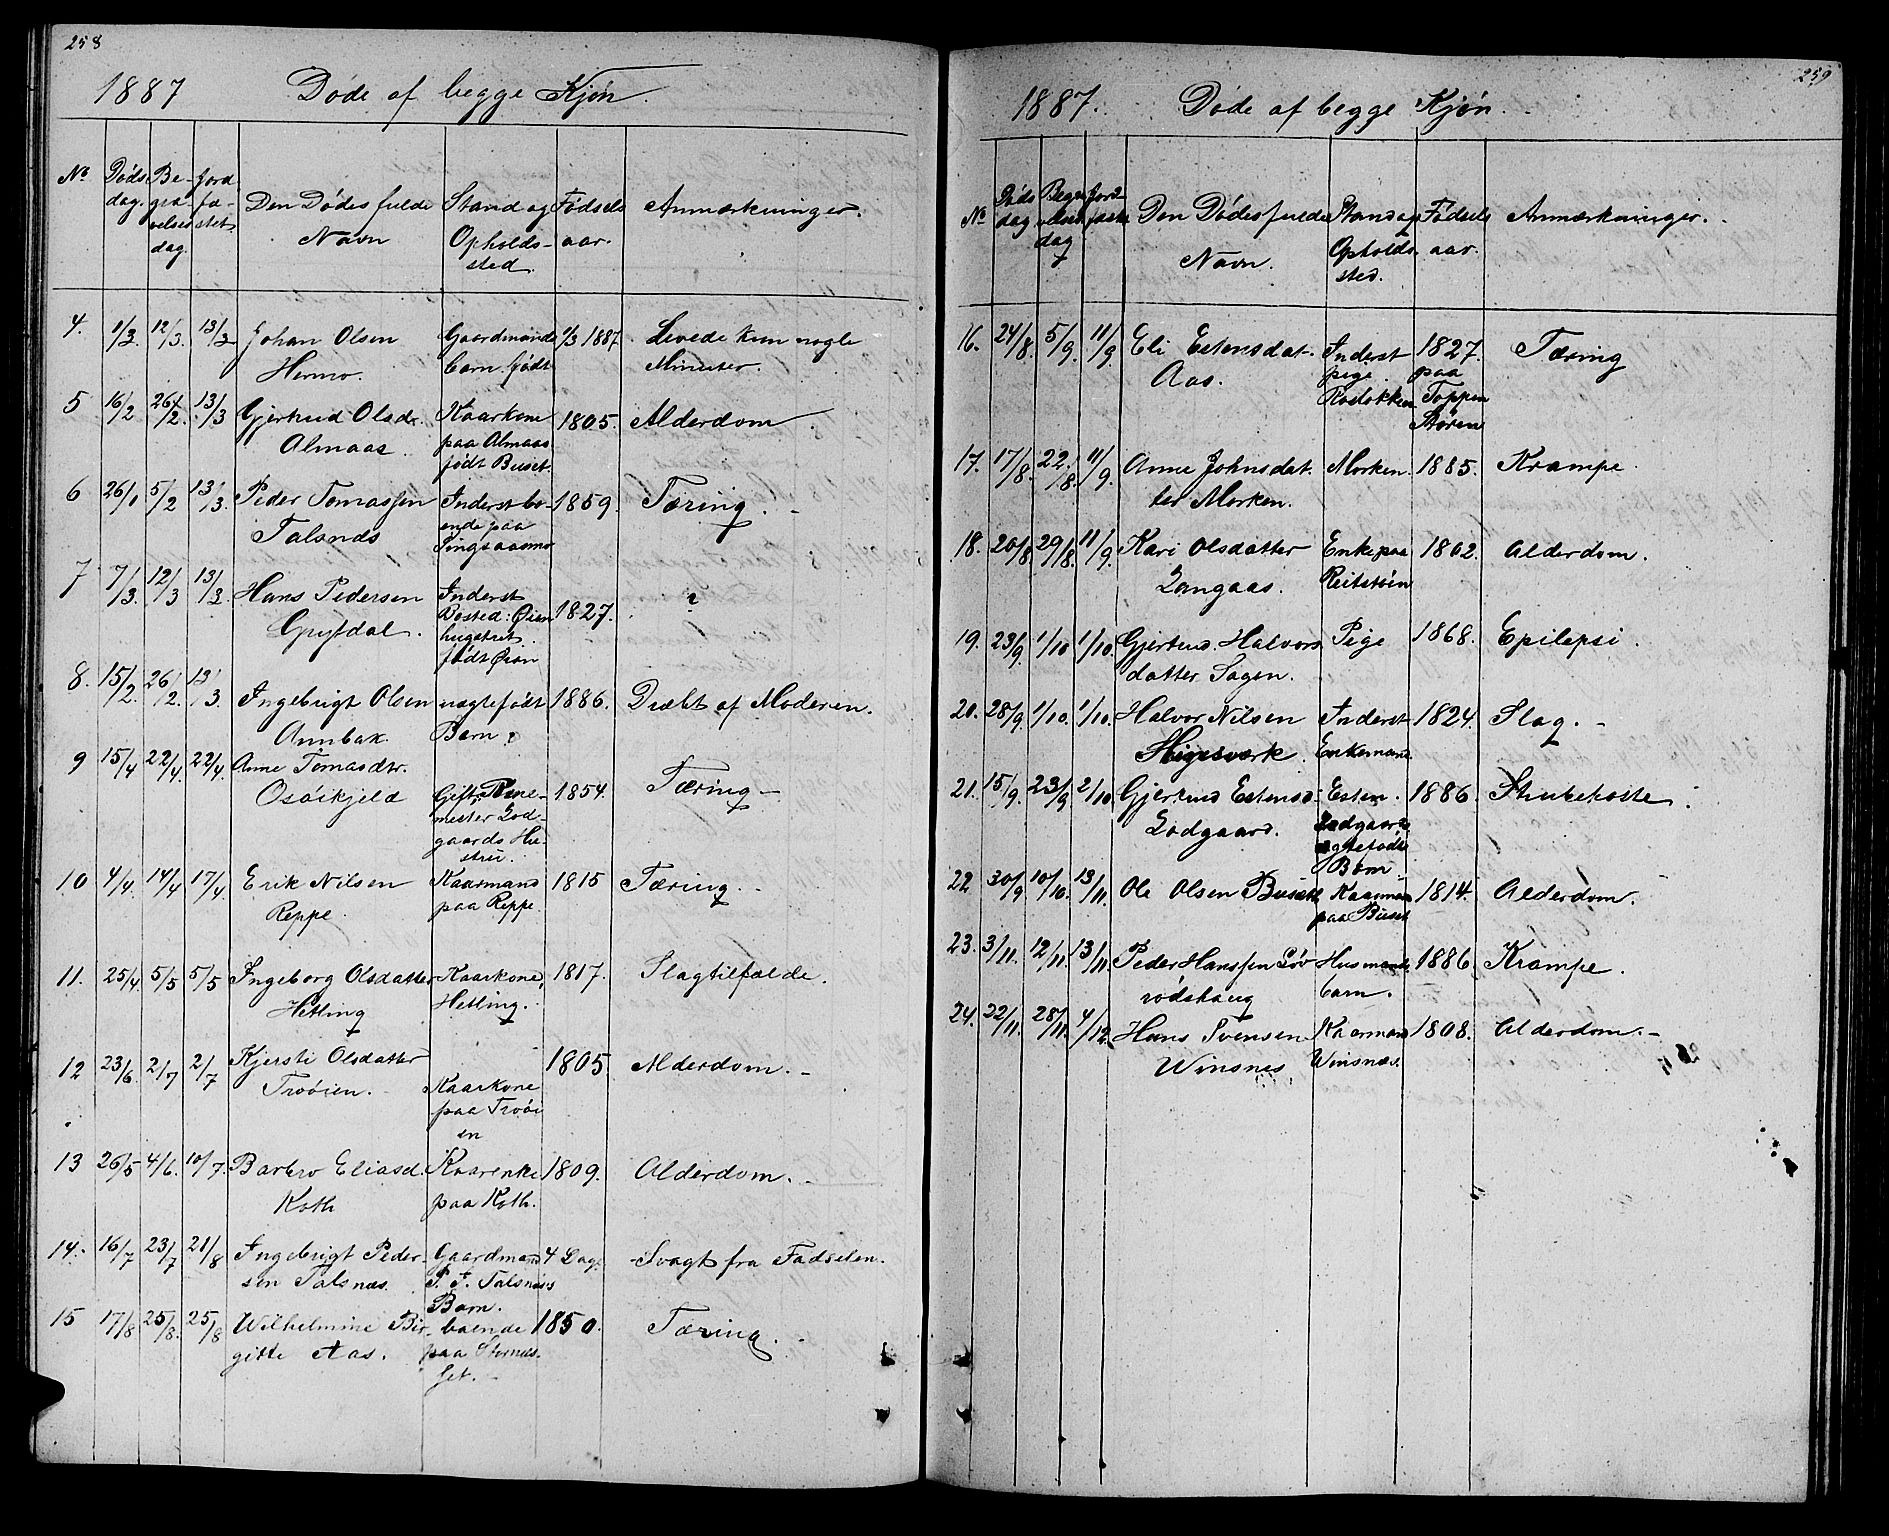 258
1887 Døde af begge Kjøn.
No Døds dag. Be-graa-velses dag. Jord fæ-stet. Den Dødes fulde Navn Stand og Opholds-sted. Fødsels aar. Anmærkninger.
4. 1/3. 12/3. 13/3 Johan Olsen Gaardmands 1/3 1887. Levede kun nogle
Hermo. barn født Minuter.
5 16/2. 26/2. 13/3 Gjertrud Olsdr. Kaarkone 1805. Alderdom.
Almaas. paa Almaas
født Buset.
6 26/1 5/2 13/3. Peder Tomassen Inderst bo- 1859. Tæring.
Talsnæs ende paa
Singsaasmo
7 7/3. 12/3 13/3. Hans Pedersen Inderst 1827. ?
Grytdal. Bosted: Øian
født Øian
8. 15/2. 26/2. 13/3. Ingebrigt Olsen uægtefødt 1886. Dræbt af Moderen.
Barn.
9 15/4 22/4. 22/4. Anne Tomasdtr. 1854. Tæring
gaards Hu-
stru.
10 4/4. 14/4 17/4 Erik Nilsen Kaarmand 1815 Tæring.
Reppe. paa Reppe
11. 25/4 5/5 5/5 Ingeborg Olsdatter Kaarkone, 1817. Slagtilfælde.
Hetling Hetling.
12 23/6. 2/7 2/7 Kjersti Olsdatter 1805 Alderdom.
Troøien. Kaarkone
paa Troøi
en
13 26/5 4/6. 10/7. Barbro Eliasd. Kaarenke 1809. Alderdom.
Koth paa Koth.
14. 16/7 23/7 21/8 Ingebrigt Peder- Gaardmand 4 Dag. Svagt fra Fødselen.
sen Talsnæs. P. T. Talsnæs
Barn.
15 17/8 25/8. 25/8 Wilhelmine Bir- boende 1850. Tæring.
gitte Aas. paa
set.
259
1887. Døde af begge Kjøn.
No Døds dag Begra dag Jord fæste Den Dødes fulde Navn. Stand og Opholds sted. Fødsels aar. Anmærkninger.
16. 24/8. 5/9. 11/9. Eli Estensdat. Inderst 1827. Tæring
Aas. pige paa
Toppen
Støren
17. 17/8. 22/8. 11/9. Anne Johnsdat Morken. 1885. Krampe.
ter Morken.
18. 20/8 29/8. 11/9. Kari Olsdatter Enke paa 1802. Alderdom.
Langaas. Reitstøen
19. 23/9. 1/10 1/10. Gjertrud Halvors Pige 1868. Epilepsi.
datter Sagen.
20. 28/9. 1/10. 1/10. Halvor Nilsen Inderst 1824. Slag.
Enkemand
21. 15/9. 23/9 2/10 Gjertrud Estensd. Esten 1886. Strubehoste.
Lodgaard. Lodgaards
ægtefødte
Barn
22 30/9 10/10 13/11. Ole Olsen Busæt Kaarman 1814. Alderdom.
paa Buset
23. 3/11. 12/11. 13/11. Peder Hanssen Løv Husmands 1886. Krampe.
rødshaug barn.
24. 22/11. 28/11. 4/12. Hans Svensen Kaarmand 1808. Alderdom.
Winsnes Winsnæs.